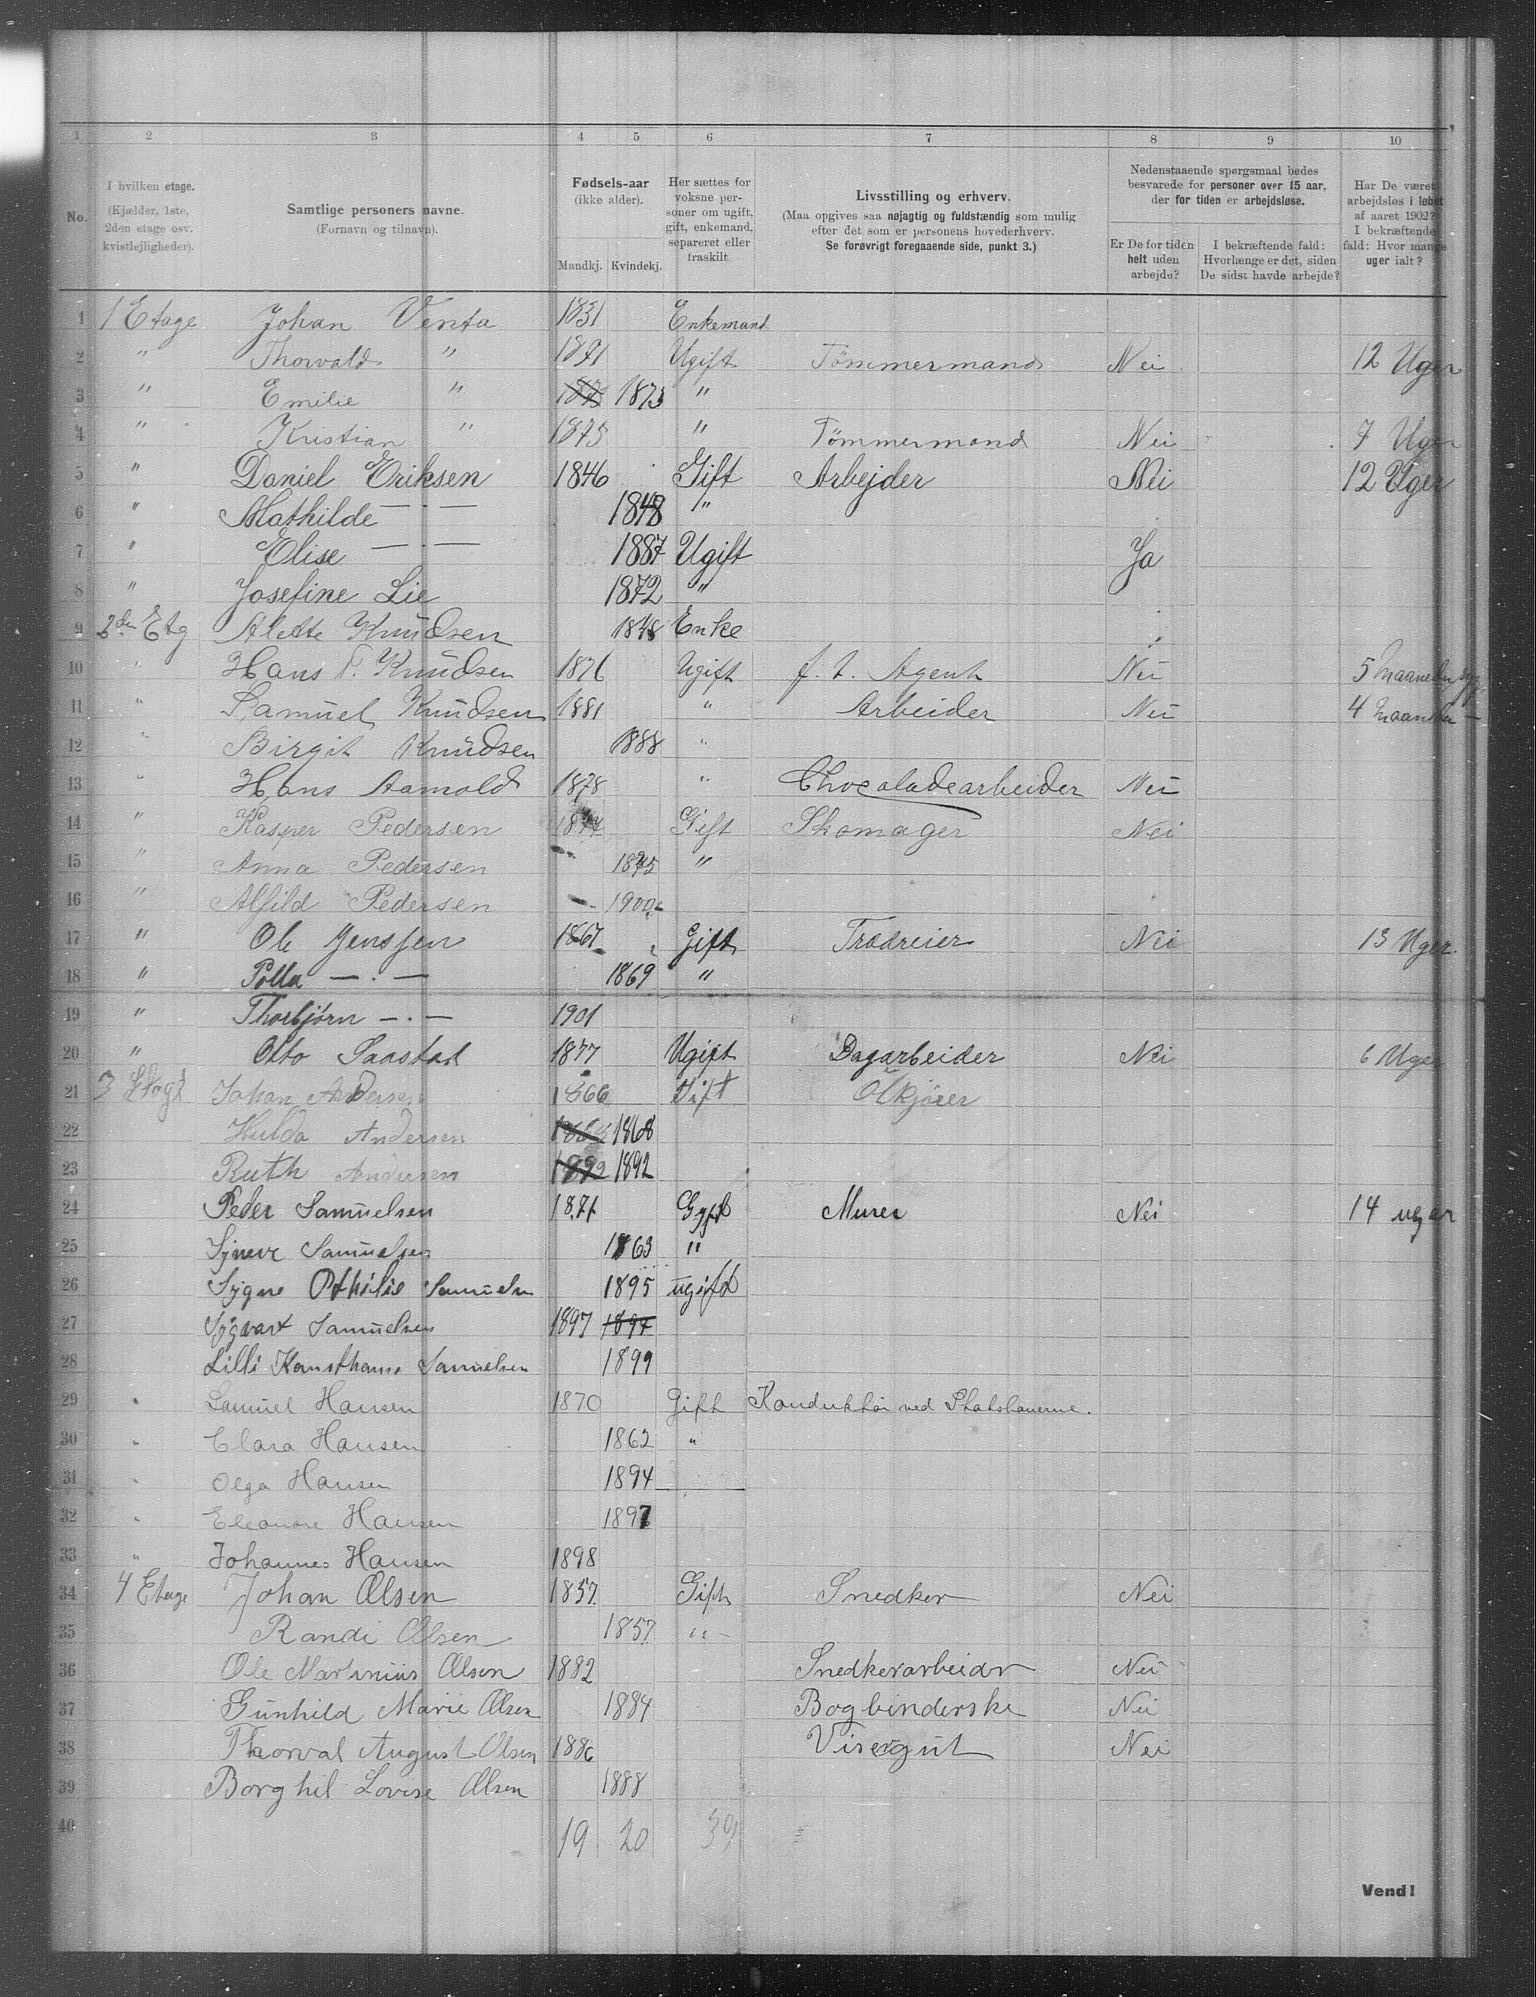 1 2 3 4 5 6 7 8 9 10
No. I hvilken etage. (Kjælder, 1ste, 2den etage osv. kvistlejligheder).
Samtlige personers navne. (Fornavn og tilnavn).
Fødsels-aar (ikke alder). Mandkj. Kvindekj.
Her sættes for voksne personer om ugift, gift, enkemand, separeret eller fraskilt.
Livsstilling og erhverv. (Maa opgives saa nøjagtig og fuldstændig som mulig efter det som er personens hovederhverv. Se forøvrigt foregaaende side, punkt 3.)
Nedenstaaende spørgsmaal bedes besvarede for personer over 15 aar, der for tiden er arbejdsløse.
Er De for tiden helt uden arbejde?
I bekræftende fald: Hvorlænge er det, siden De sidst havde arbejde?
Har De været arbejdsløs i løbet af aaret 1902? I bekræftende fald: Hvor mange uger ialt?
1 1 Etage Johan Venta 1831 Enkemand
2 " Thorvald " 1871 Ugift Tømmermand Nei 12 Uger
3 " Emilie " 1873 1873 "
4 " Kristian " 1875 " Tømmermand Nei 7 Uger
5 " Daniel Eriksen 1846 Gift Arbejder Nei 12 Uger
6 " Mathilde —·— 1848 "
7 " Elise —·— 1887 Ugift Ja
8 " Josefine Lie 1872 "
9 2den Etg Alette Knudsen 1848 Enke
10 " Hans P. Knudsen 1876 Ugift f. t. Agent Nei 5 Maaneder
11 " Samuel Knudsen 1881 " Arbeider Nei 4 Maaneder —
12 " Birgit Knudsen 1888 "
13 " Hans Aamold 1878 " Chocoladearbeider Nei
14 " Kasper Pedersen 1877 Gift Skomager Nei
15 " Anna Pedersen 1875 "
16 " Alfild Pedersen 1900
17 " Ole Jenssen 1867 Gift Trædreier Nei 13 Uger.
18 " Polla —·— 1869 "
19 " Thorbjørn —·— 1901
20 " Otto Saastad 1877 Ugift Dagarbeider Nei 6 Uger
21 3 Etage Johan Andersen 1866 Gift Ølkjører
22 Hulda Andersen 1868 1868
23 Ruth Andersen 1892 1892
24 Peder Samuelsen 1871 Gift Murer Nei 14 uger
25 Syneve Samuelsen 1863 "
26 Sygne Othilie Samuelsn 1895 ugift
27 Sigvart Samuelsen 1897 1897
28 Lilli Samuelsen 1899
29 " Samuel Hansen 1870 Gift Konduktør ved Statsbanerne.
30 " Clara Hansen 1862 "
31 " Olga Hansen 1894
32 " Eleonore Hansen 1897
33 " Johannes Hansen 1898
34 4 Etage Johan Olsen 1857 Gift Snedker Nei
35 Randi Olsen 1857 " -
36 Ole Martinius Olsen 1882 Snedkerarbeidr Nei
37 Gunhild Marie Olsen 1884 Bogbinderske Nei
38 Thorval August Olsen 1886 Visergut Nei
39 Borghil Lovise Olsen 1888
40 19 20 39
Vend!